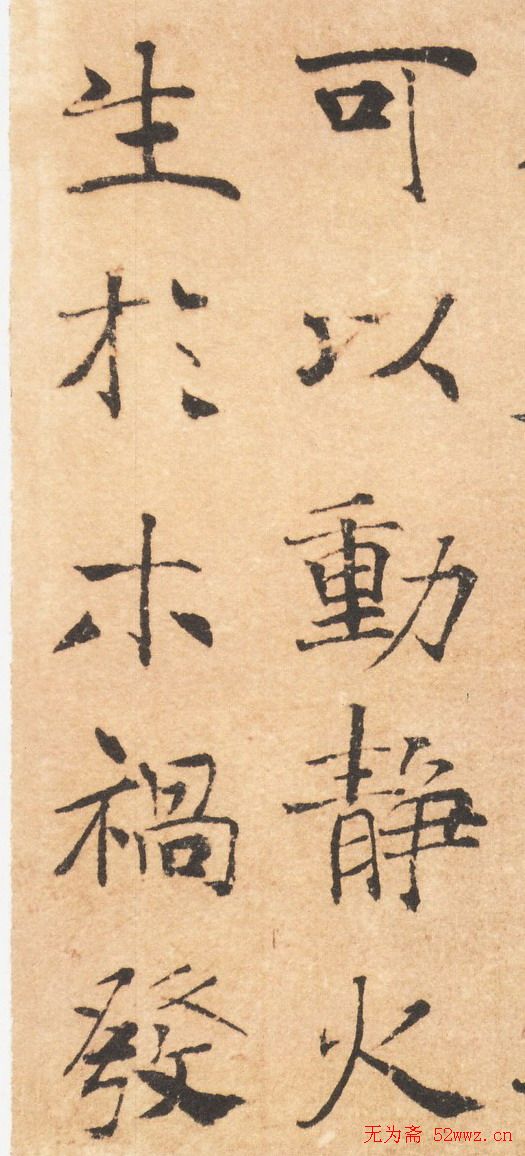 可以動靜火
生於木禍發
无为斋 52wwz.cn